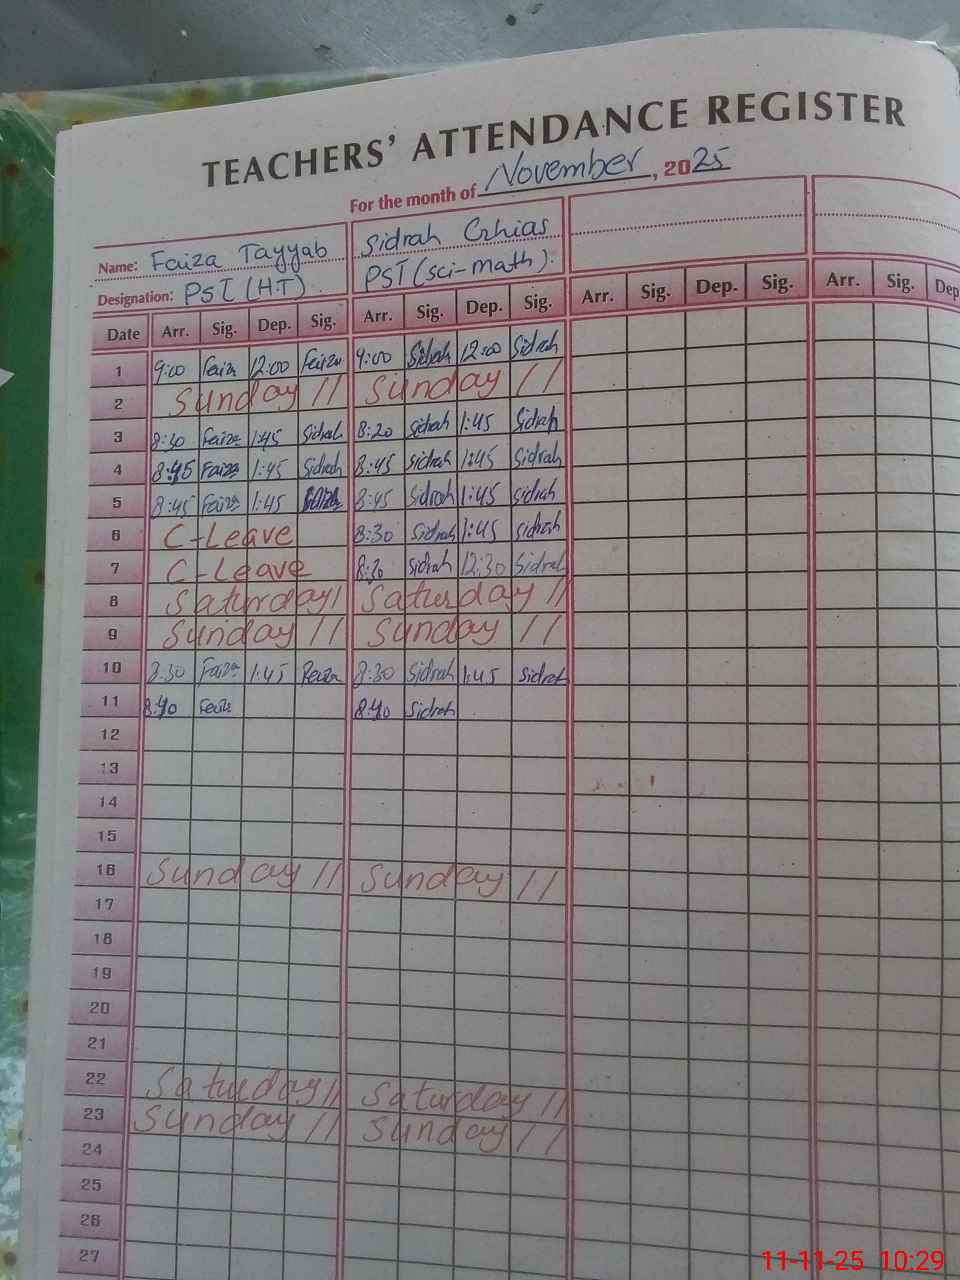 TEACHERS' ATTENDANCE REGISTER
For the month of November, 2025
Name: Faiza Tayyab Sidrah Ghias
Designation: PST (HT) PST (sci-math)
Date Arr. Sig. Dep. Sig. Arr. Sig. Dep. Sig. Arr. Sig. Dep. Sig. Arr. Sig. Dep
1 9:00 Faiza 12:00 Faiza 9:00 Sidrah 12:00 Sidrah
2 Sunday // Sunday //
3 8:30 Faiza 1:45 Sidrah 8:20 sidrah 1:45 Sidrah
4 8:45 Faiza 1:45 Sidrah 8:45 sidrah 1:45 Sidrah
5 8:45 Faiza 1:45 Faiza 8:45 Sidrah 1:45 sidrah
6 C-Leave 8:30 Sidrah 1:45 sidrah
7 C-Leave 8:30 sidrah 12:30 Sidrah
8 Saturday // Saturday //
9 Sunday // Sunday //
10 8:30 Faiza 1:45 Faiza 8:30 Sidrah 1:45 sidrah
11 8:40 Faiza 8:40 Sidrah
12
13
14
15
16 Sunday // Sunday //
17
18
19
20
21
22 Saturday // Saturday //
23 Sunday // Sunday //
24
25
26
27
11-11-25 10:29